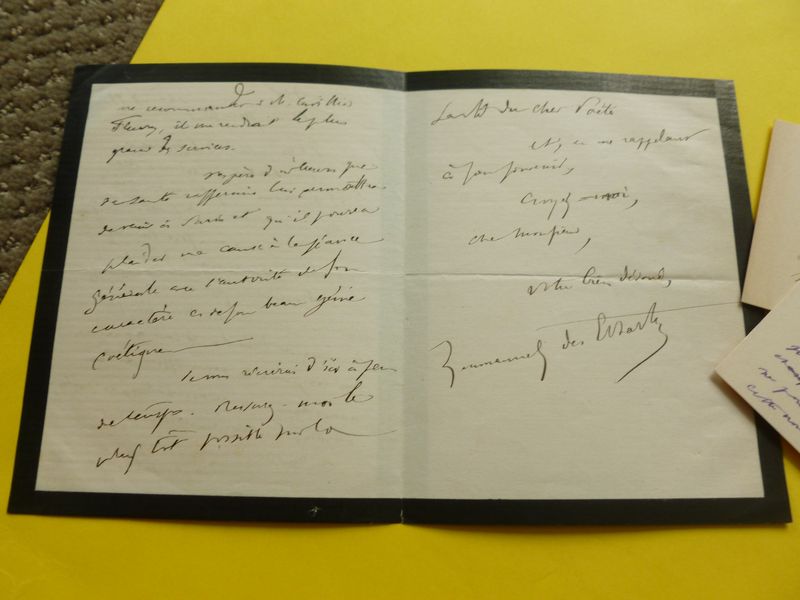 me recommander à M. Cuvillier
Fleury, il me rendrait le plus
grand des services.
J'espère d'ailleurs que
sa santé raffermie lui permettra
de venir à Paris et qu'il pourra
plaider ma cause à la séance
générale avec l'autorité de son
caractère et de son beau génie
poétique
Je vous écrirai d'ici à peu
de temps. Rassurez-moi le
plus tôt possible sur la
santé du cher Poète
et, en me rappelant
à son souvenir,
croyez-moi,
cher Monsieur,
votre bien dévoué,
Emmanuel des Essarts